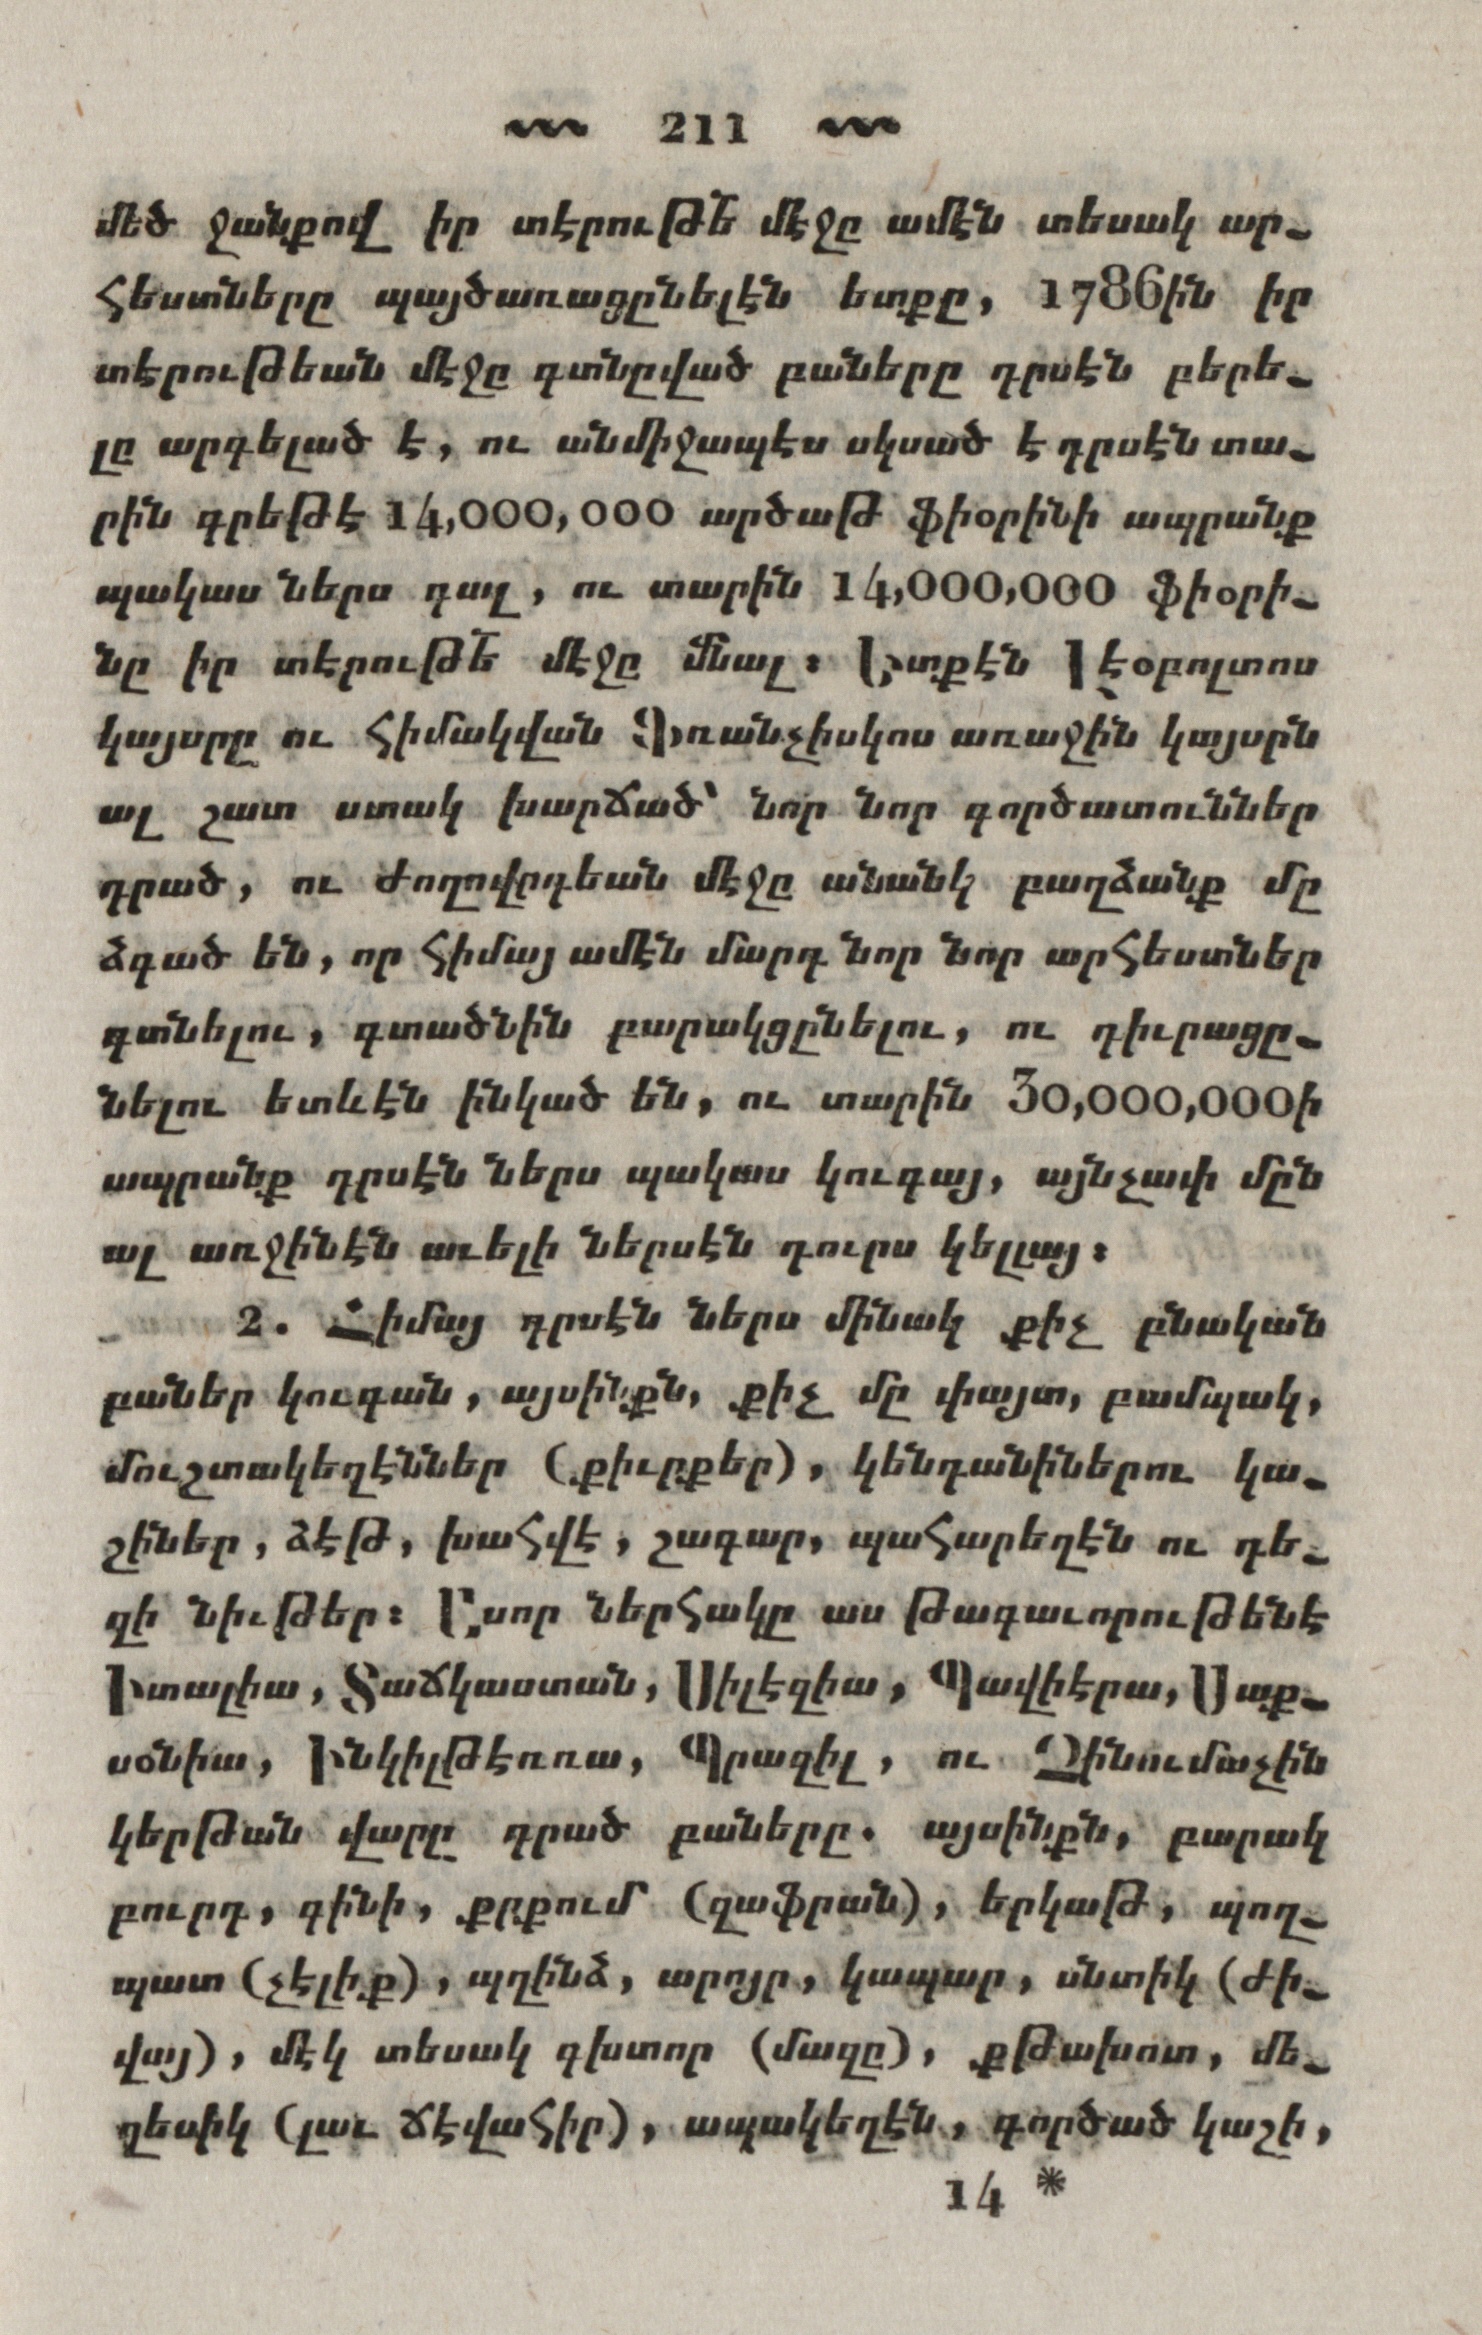 211
մեծ ջանքով իր տէրութե՟ մէջը ամէն տեսակ ար֊
հեստները պայծառացընելէն ետքը, 1786ին իր
տէրութեան մէջը գտնըված բաները դրսէն բերե֊
լը արգելած է, ու անմիջապէս սկսած է դրսէն տա֊
րին գրեթէ 14,000,000 արծաթ ֆիօրինի ապրանք
պակաս ներս գալ, ու տարին 14,000,000 ֆիօրի֊
նը իր տէրութե՟ մէջը մ՟նալ։ Ետքէն Լէօբոլտոս
կայսրը ու հիմակվան Ֆռանչիսկոս առաջին կայսրն
ալ շատ ստակ խարճած՝ նոր նոր գործատուններ
դրած, ու ժողովըդեան մէջը անանկ բաղձանք մը
ձգած են, որ հիմայ ամէն մարդ նոր նոր արհեստներ
գտնելու, գտածնին բարակցընելու, ու դիւրացը֊
նելու ետևէն ինկած են, ու տարին 30,000,000ի
ապրանք դրսէն ներս պակաս կուգայ, այնչափ մըն
ալ առջինէն աւելի ներսէն դուրս կելլայ։
2. Հիմայ դրսէն ներս մինակ քիչ բնական
բաներ կուգան, այսինքն, քիչ մը փայտ, բամպակ,
մուշտակեղէններ (քիւրքեր), կենդանիներու կա֊
շիներ, ձէթ, խահվէ, շագար, պահարեղէն ու դե֊
ղի նիւթեր։ Ըսոր ներհակը աս թագաւորութենէ
Իտալիա, Տաճկաստան, Սիլէզիա, Պավիէրա, Սաք֊
սօնիա, Ինկիլթէռռա, Պրազիլ, ու Չինումաչին
կերթան վարը դրած բաները. այսինքն, բարակ
բուրդ, գինի, քրքում (զաֆրան), երկաթ, պող֊
պատ (չէլիք), պղինձ, արոյր, կապար, սնտիկ (ժի֊
վայ), մէկ տեսակ գխտոր (մազը), քթախոտ, մե֊
ղեսիկ (լաւ ճէվահիր), ապակեղէն, գործած կաշի,
14 *